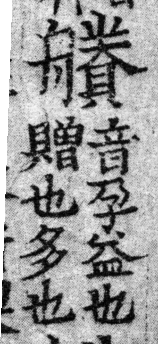 賸
音孕益也
贈也多也